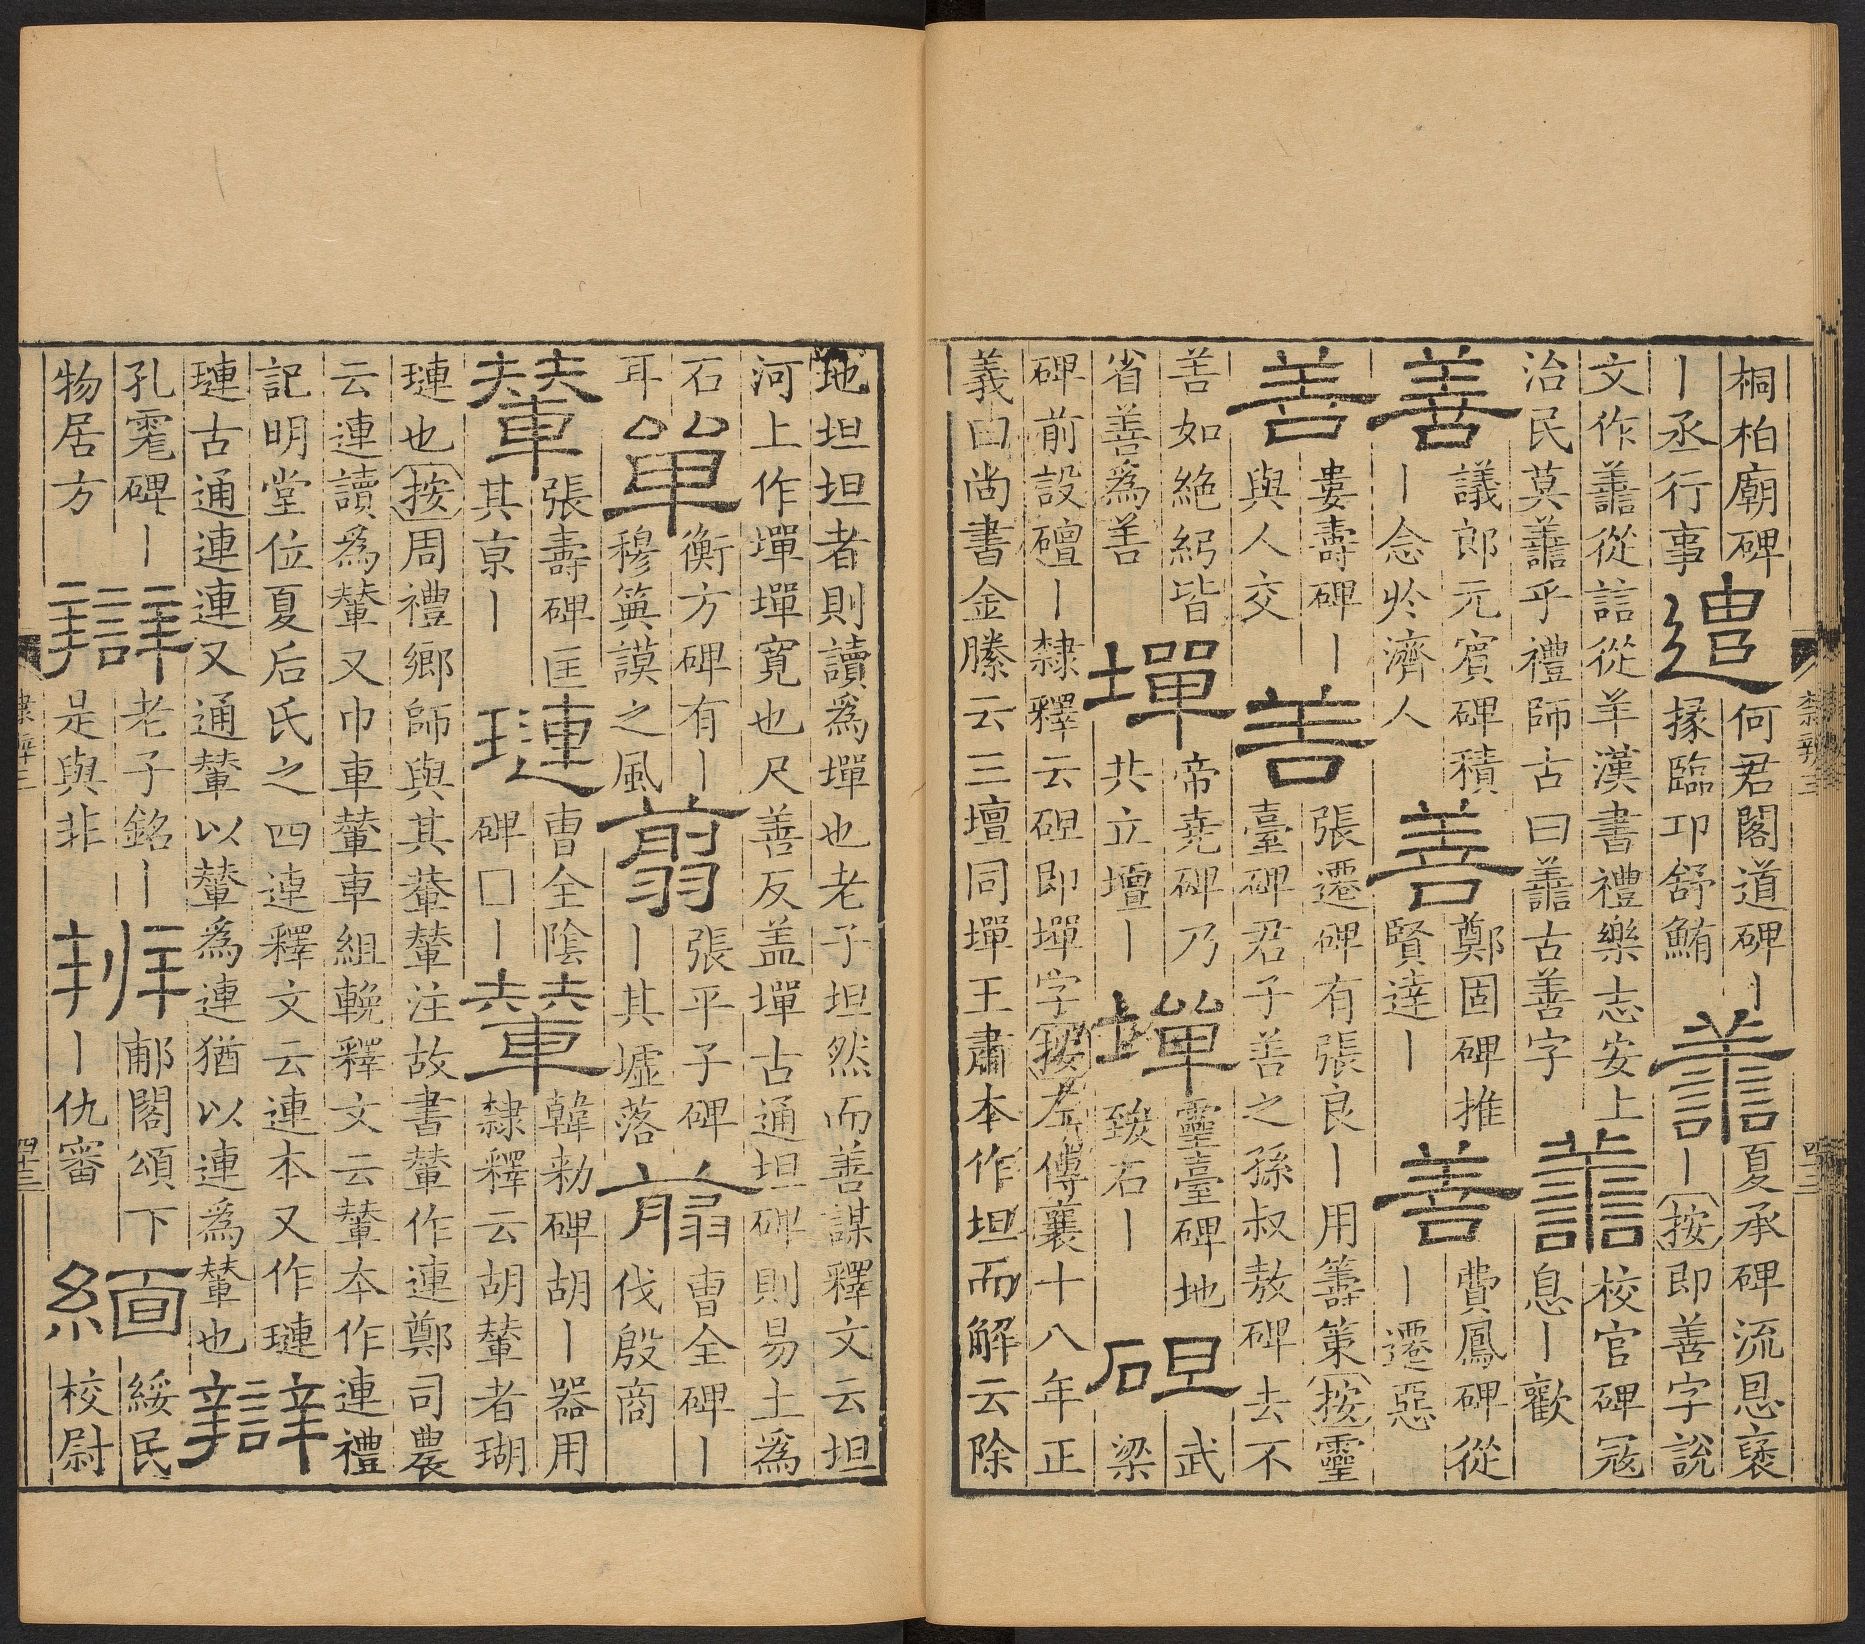 桐柏廟碑
丨丞行事
遣
何君閣道碑丨
掾臨卭舒鮪
譱
夏承碑流恩褒
丨按即善字說
文作譱從誩從羊漢書禮樂志安上
治民莫譱乎禮師古曰譱古善字
譱
校官碑冦
息丨歡
善
議郎元賔碑積
丨念於濟人
善
鄭固碑推
賢達丨
善
費鳳碑從
丨遷惡
善
婁壽碑丨
與人交
善
張遷碑有張良丨用籌策按靈
臺碑君子善之孫叔敖碑去不
善如絶紖皆
省善爲善
墠
帝堯碑乃
共立壇丨
墠
靈臺碑地
致石丨
䃪
武
梁
碑前設䃪丨隸釋云䃪即墠字按左傳襄十八年正
義曰尚書金縢云三壇同墠王肅本作坦而解云除
地坦坦者則讀爲墠也老子坦然而善謀釋文云坦
河上作墠墠寬也尺善反盖墠古通坦碑則易土爲
石
耳
單
衡方碑有丨
穆謨之風
翦
張平子碑
丨其墟落
翦
曹全碑丨
伐殷商
輦
張壽碑匡
其京丨
璉
曹全陰
碑□丨
輦
韓勑碑胡丨器用
隸釋云胡輦者瑚
璉也按周禮鄉師與其輂輦注故書輦作連鄭司農
云連讀爲輦又巾車輦車組輓釋文云輦本作連禮
記明堂位夏后氏之四連釋文云連本又作璉
璉古通連連又通輦以輦爲連猶以連爲輦也
辯
孔碑丨
物居方
辯
老子銘丨
是與非
辨
郙閣頌下
丨仇審
緬
綏民
校尉
隸辨三
四十三